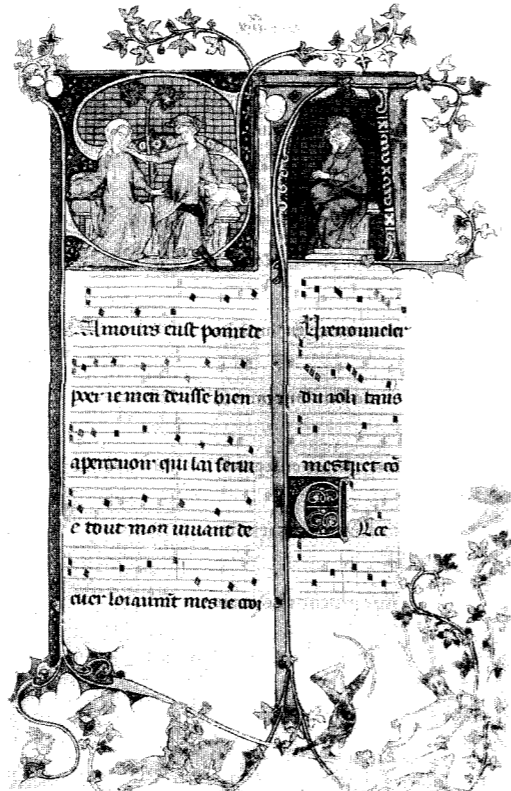 SAmours eust point de
poer ie men deusse bien
aperceuoir qui lai serui
e tout mon uiuant de
cuer loiaumt mes ie croi
AU renouueler
du ioli tans
mestuet cõ
ECce